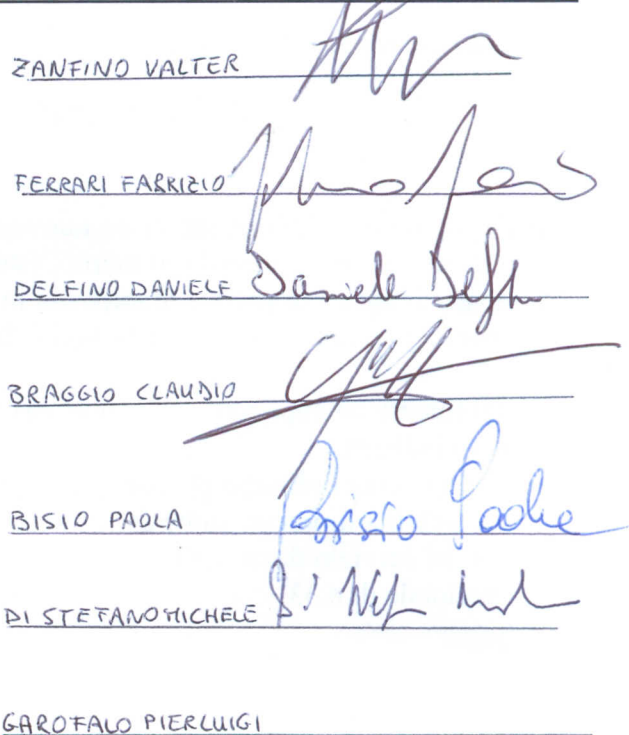 ZANFINO VALTER
FERRARI FABRIZIO
DELFINO DANIELE Daniele Delfino
BRAGGIO CLAUDIO
BISIO PAOLA Bisio Paola
DI STEFANO MICHELE
GAROFALO PIERLUIGI